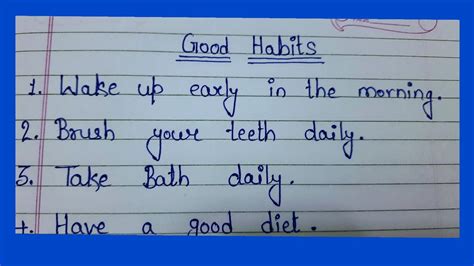 Good Habits
1. Wake up early in the morning.
2. Brush your teeth daily.
3. Take Bath daily.
4. Have a good diet.